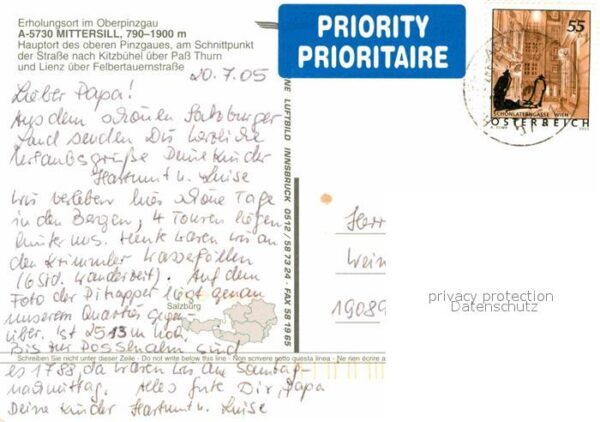 Erholungsort im Oberpinzgau
A-5730 MITTERSILL, 790–1900 m
Hauptort des oberen Pinzgaues, am Schnittpunkt
der Straße nach Kitzbühel über Paß Thurn
und Lienz über Felbertauernstraße
20.7.05
Lieber Papa!
Aus dem schönen Salzburger
Land senden Dir herzliche
Urlaubsgrüße Deine Kinder
Hartmut u. Luise
Wir verleben hier schöne Tage
in den Bergen, 4 Touren liegen
hinter uns. Heute waren wir an
den Krimmler Wasserfällen
(6 Std. Wanderzeit). Auf dem
Foto der Pihapper liegt genau
unserem Quartier gegen-
über. Ist 2513 m hoch
Bis zur Posshalm sind
es 1788, da waren wir am Sonntag-
nachmittag. Alles Gute Dir, Papa
Deine Kinder Hartmut u. Luise
Salzburg
Schreiben Sie nicht unter dieser Zeile - Do not write below this line - Non scrivere netto questa linea - Ne rien écrire a
NE LUFTBILD INNSBRUCK 0512/58 73 24 - FAX 58 19 65
PRIORITY
PRIORITAIRE
55
SCHÖNLATERNGASSE WIEN
ÖSTERREICH
Herr
Wein
19089
privacy protection
Datenschutz